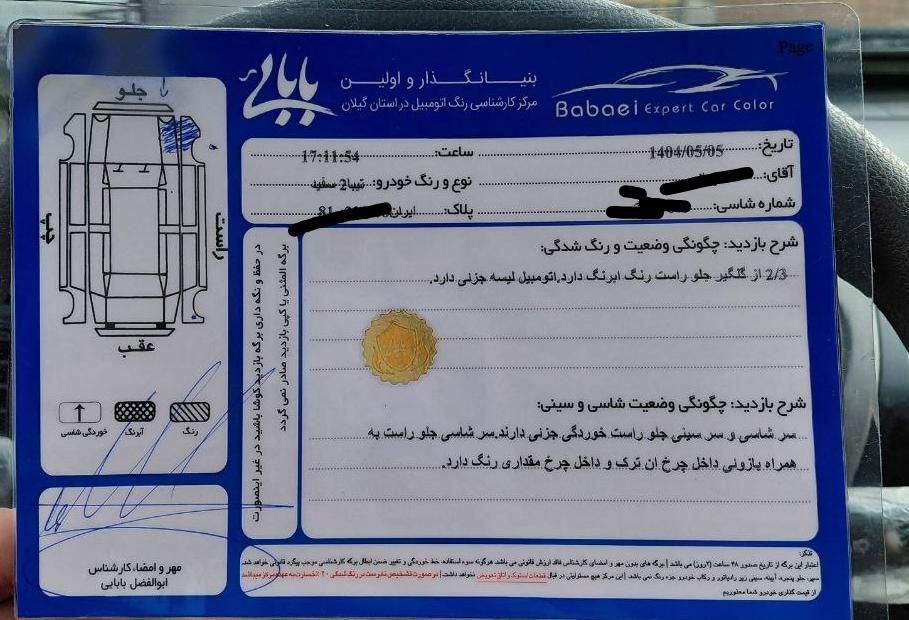 Page
بابایی
بنیانگذار و اولین
مرکز کارشناسی رنگ اتومبیل در استان گیلان
Babaei Expert Car Color
تاریخ: 1404/05/05
ساعت: 17:11:54
آقای:
نوع و رنگ خودرو: تیبا2 سفید
شماره شاسی:
پلاک: ایران 81
جلو
چپ
راست
عقب
رنگ
آبرنگ
خوردگی شاسی
در حفظ و نگه داری برگه بازدید کوشا باشید در غیر اینصورت
برگه المثنی یا کپی بازدید صادر نمی گردد
شرح بازدید: چگونگی وضعیت و رنگ شدگی:
2/3 از گلگیر جلو راست رنگ ابرنگ دارد.اتومبیل لیسه جزئی دارد.
شرح بازدید: چگونگی وضعیت شاسی و سینی:
سر شاسی و سر سینی جلو راست خوردگی جزنی دارند.سر شاسی جلو راست به
همراه پازونی داخل چرخ ان ترک و داخل چرخ مقداری رنگ دارد.
مهر و امضاء کارشناس
ابوالفضل بابایی
تذکر:
اعتبار این برگه از تاریخ صدور ۴۸ ساعت (۲روز) می باشد | برگه های بدون مهر و امضای کارشناس فاقد ارزش قانونی می باشد. هرگونه سوء استفاده، خط خوردگی و تغییر ضمن ابطال برگه کارشناسی موجب پیگرد قانونی خواهد شد.
سپر، جلو پنجره، آیینه، سینی زیر رادیاتور و رکاب خودرو جزء رنگ نمی باشد. | این مرکز هیچ مسئولیتی در قبال قطعات استوک و اتاق تعویض نخواهد داشت | در صورت تشخیص نادرست در رنگ شدگی ۲۰٪ خسارت به عهده مرکز میباشد
از قیمت گذاری خودرو شما معذوریم